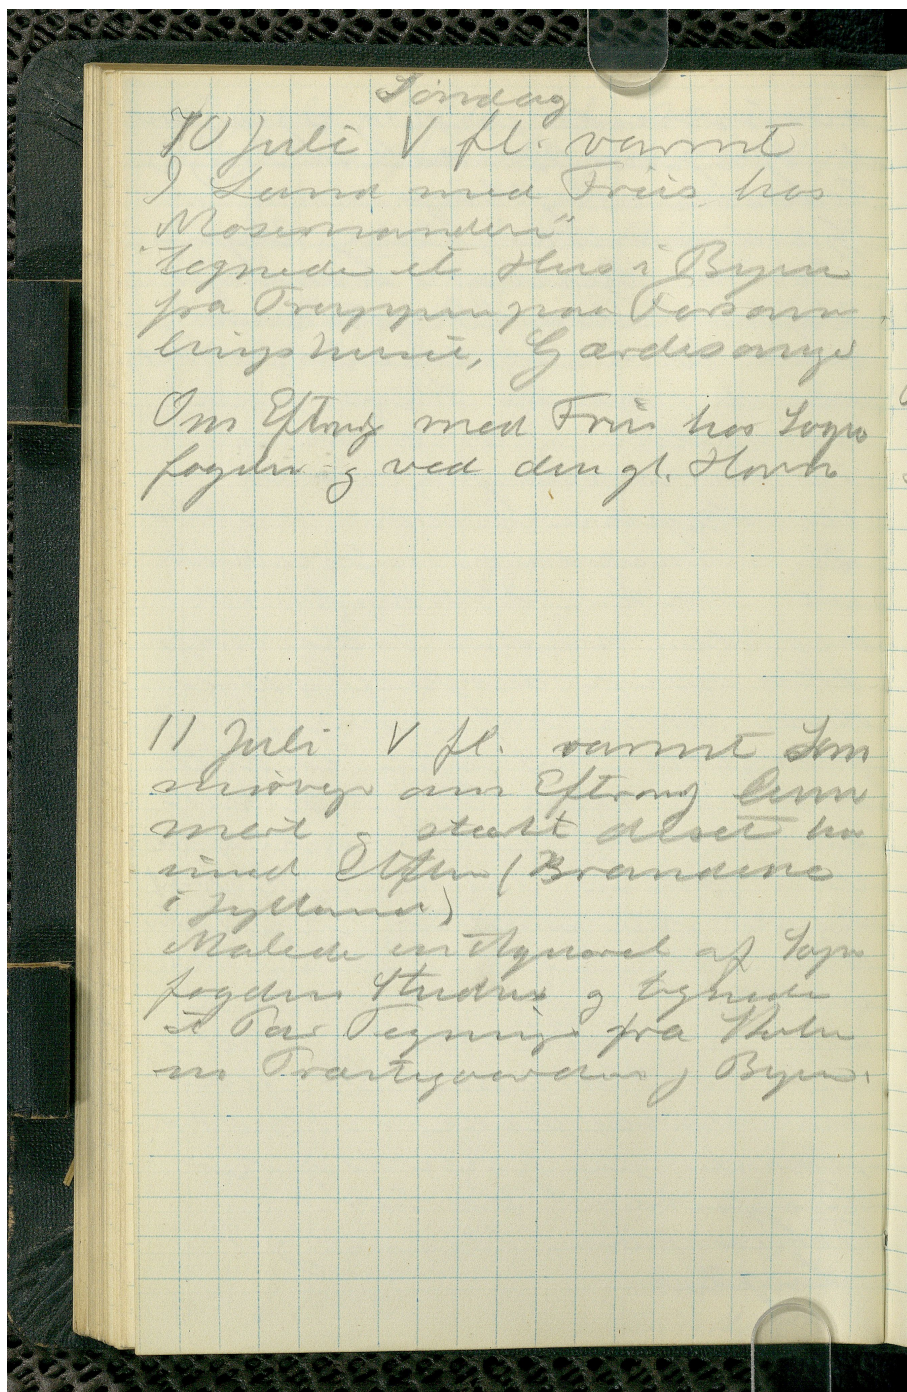 Søndag
10 Juli V fl. varmt
I Land med Friis hos
Mosemanden"
tegnede et Hus i Byen
fra Trappen paa Forsam
lingshuset, Gærdesanger
Om Eftmdg med Friis hos Sogne
fogden og ved den gl. Havn
11 Juli V fl. varmt Som
mervejr om Eftermdg
og stærkt diset
(Brandene
i Jylland)
Malede en Aqvarel af Sogne
fogdens og tegnede
et Par Tegninger fra
en Præstegaarden i Byen.